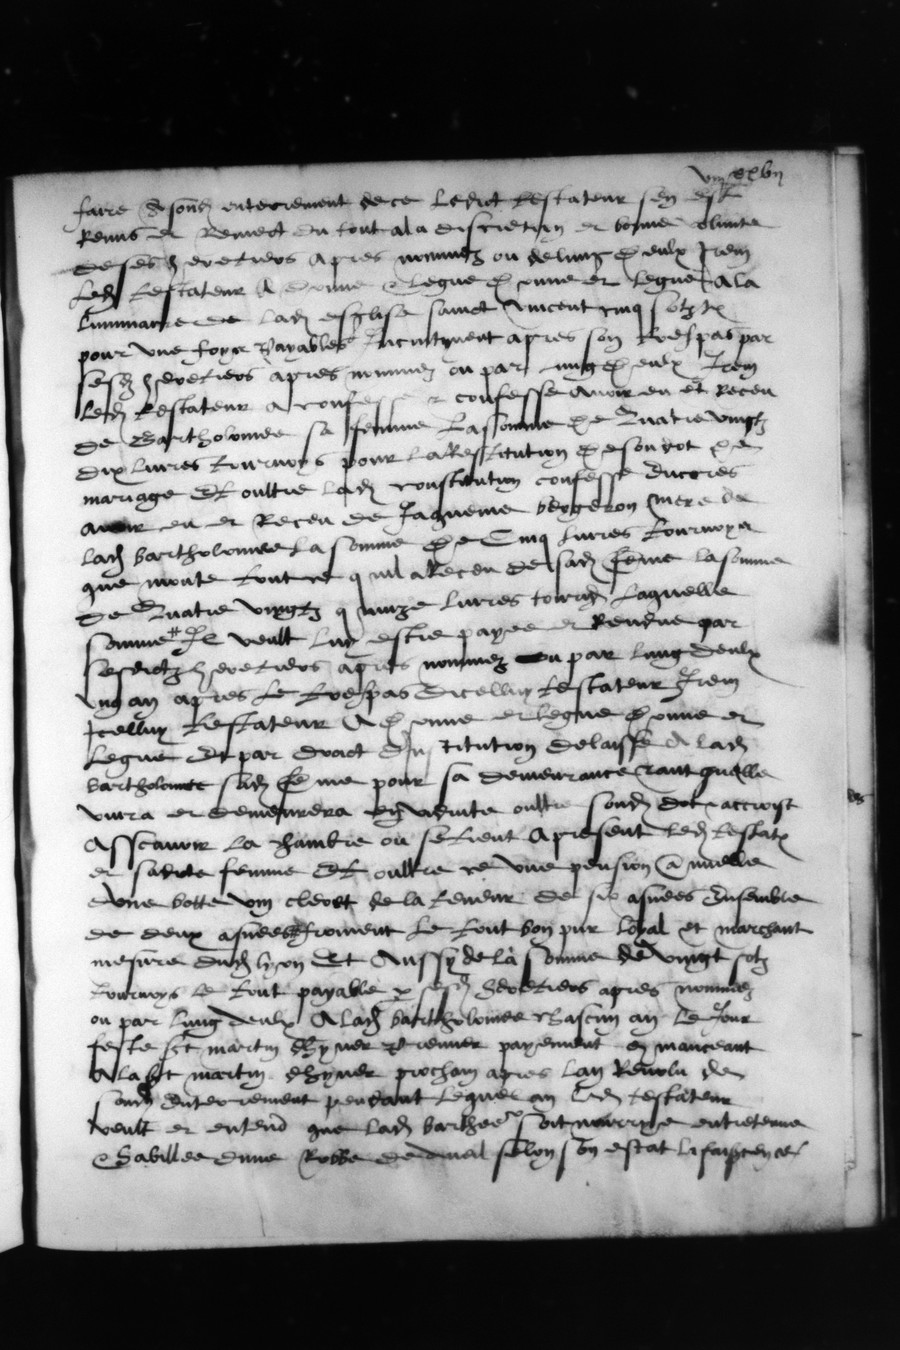 faire & sond enterrement de ce ledict testateur sen est
remis et remect du tout a la discretion et bonne volunte
de sesd heretiers apres nommez ou de lung deulx Item
led testateur a donne & legue donne et legue a la
luminaire de lad esglise sainct vincent cinq solz tz
pour une foys payables incontinent apres son trespas par
sesd heretiers apres nommez ou par lung deulx Item
led testateur a confesse & confesse avoir eu et receu
de Bartholomee sa femme la somme de quatre vingtz
dix livres tournoys pour la constitution de son dot de
mariage Et oultre lad constitution confesse
avoir eu et receu de Jaqueme mere de
lad bartholomee la somme de cinq livres tournoys
que monte tout ce quil a receu de sad feme la somme
de quatre vingtz quinze livres tourn laquelle
somme Il veult luy estre payee et rendue par
sesdictz heretiers apres nommez ou par lung deulx
ung an apres le trespas dicelluy testateur Item
Icelluy testateur a donne et legue donne et
legue Et par droict dinstitution delaisse a lad
bartholomee sad feme pour sa demeurance tant quelle
vivra et demeurera en viduite oultre sond dot & accroist
Asscavoir la chambre ou se tient a present led testatr
et sadicte femme Et oultre ce une pension annuelle
dune botte vin de la teneur de six asnees Ensemble
de deux asnees froment le tout bon pur loyal et marchant
mesure dud lyon Et Aussy de la somme de vingt solz
tournoys le tout payable p sesd heretiers apres nommez
ou par lung deulx A lad bartholomee chascun an le Jour
feste sct martin dhyver & premier payement commanceant
A la sct martin dhyver prochain apres lan revolu de
sond enterrement pendant lequel an led testateur
veult et entend que lad barthee soit nourrye entretenue
& habillee dune robbe de dueil selon son estat